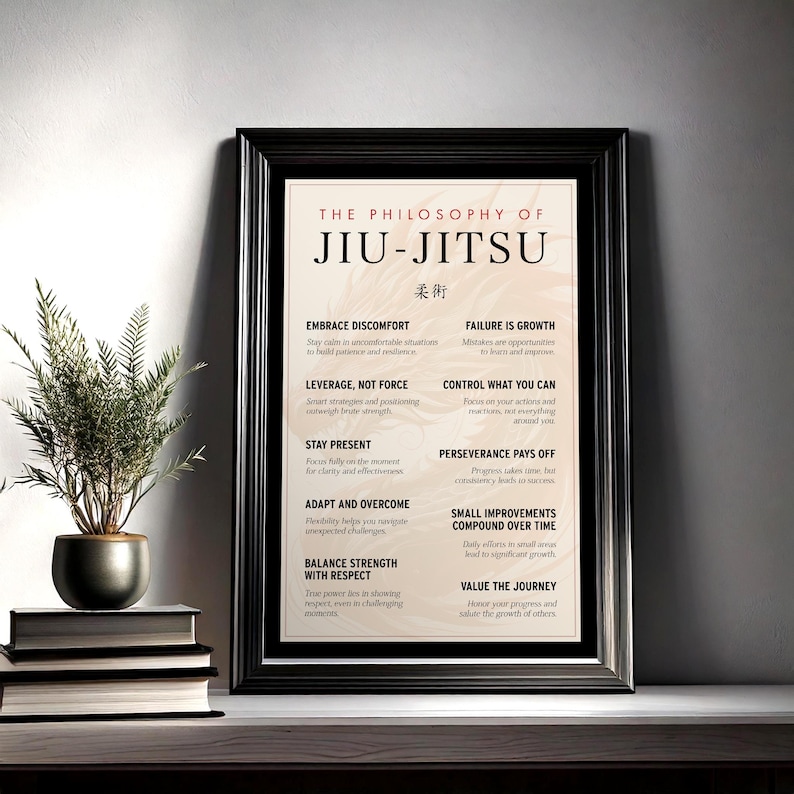 THE PHILOSOPHY OF
JIU-JITSU
柔術
EMBRACE DISCOMFORT
Stay calm in uncomfortable situations
to build patience and resilience.
LEVERAGE, NOT FORCE
Smart strategies and positioning
outweigh brute strength.
STAY PRESENT
Focus fully on the moment
for clarity and effectiveness.
ADAPT AND OVERCOME
Flexibility helps you navigate
unexpected challenges.
BALANCE STRENGTH
WITH RESPECT
True power lies in showing
respect, even in challenging
moments.
FAILURE IS GROWTH
Mistakes are opportunities
to learn and improve.
CONTROL WHAT YOU CAN
Focus on your actions and
reactions, not everything
around you.
PERSEVERANCE PAYS OFF
Progress takes time, but
consistency leads to success.
SMALL IMPROVEMENTS
COMPOUND OVER TIME
Daily efforts in small areas
lead to significant growth.
VALUE THE JOURNEY
Honor your progress and
salute the growth of others.